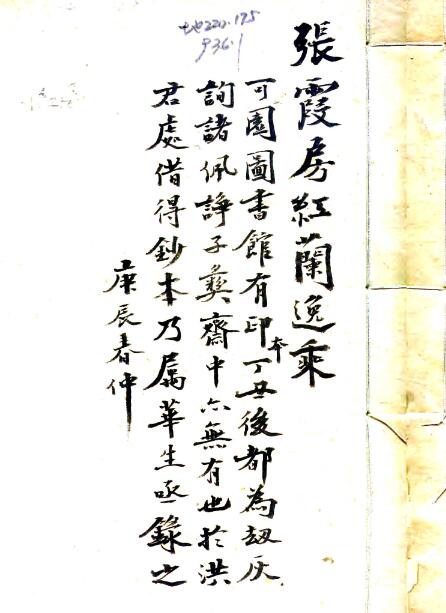 張霞房紅蘭逸乘
可園圖書館有印本丁丑後都為劫灰
詢諸佩諍子彝齋中亦無有也於洪
君處借得鈔本乃屬華生亟錄之
庚辰春仲
地220.175
936.1